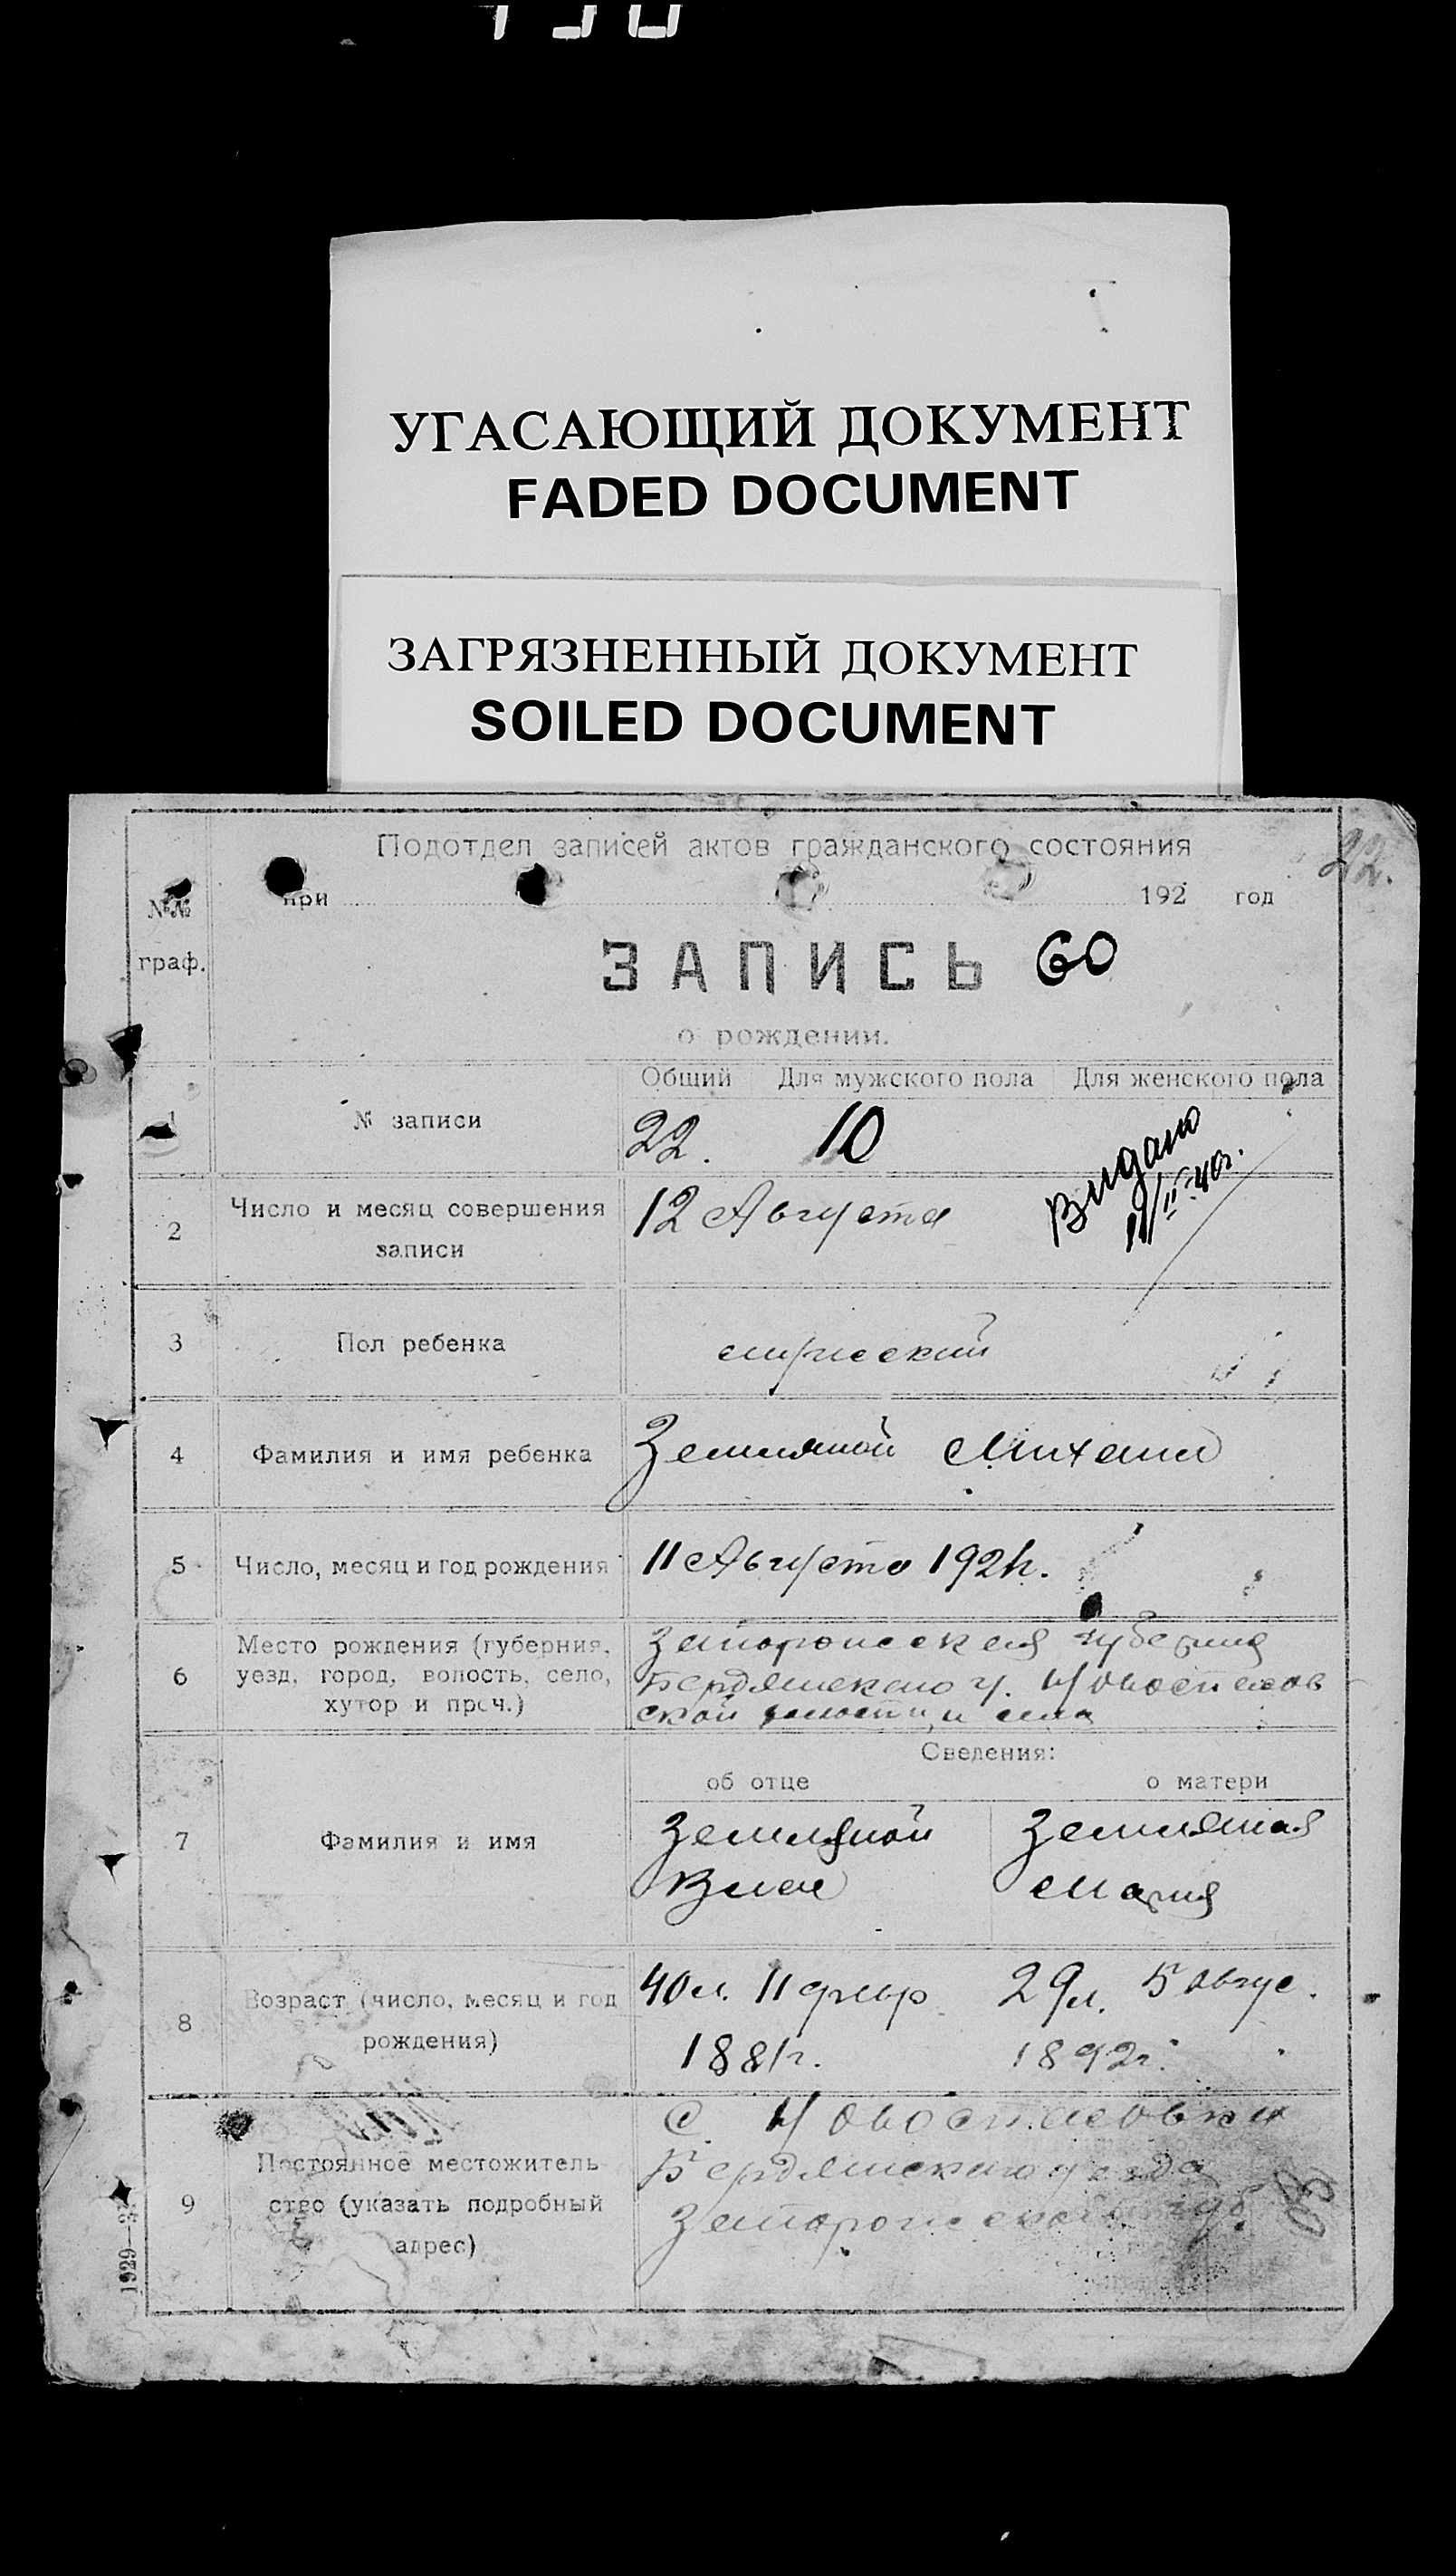 УГАСАЮЩИЙ ДОКУМЕНТ
FADED DOCUMENT
ЗАГРЯЗНЕННЫЙ ДОКУМЕНТ
SOILED DOCUMENT
22.
Подотдел записей актов гражданского состояния
при 192 год
№№
граф.
ЗАПИСЬ 60
о рождении.
Общий Для мужского пола Для женского пола
1 № записи 22. 10
Видано
11/II-40г.
2 Число и месяц совершения записи 12 Августа
3 Пол ребенка мужеский
4 Фамилия и имя ребенка Земляной Михаил
5 Число, месяц и год рождения 11 Августа 192
6 Место рождения (губерния,
уезд, город, волость, село,
хутор и проч.)
Запорожская губерния
Бердянского у. Новоспасов
ской волости и села
Сведения:
об отце о матери
7 Фамилия и имя
Земляной Земляная
Влас Мария
8 Возраст (число, месяц и год
рождения)
40 л. 11 февр 29 л. 5 Авгус.
1881г. 1892г.
9 Постоянное местожитель
ство (указать подробный
адрес)
С. Новоспасовки
Бердянского уезда
Запорожской губ
1929—3